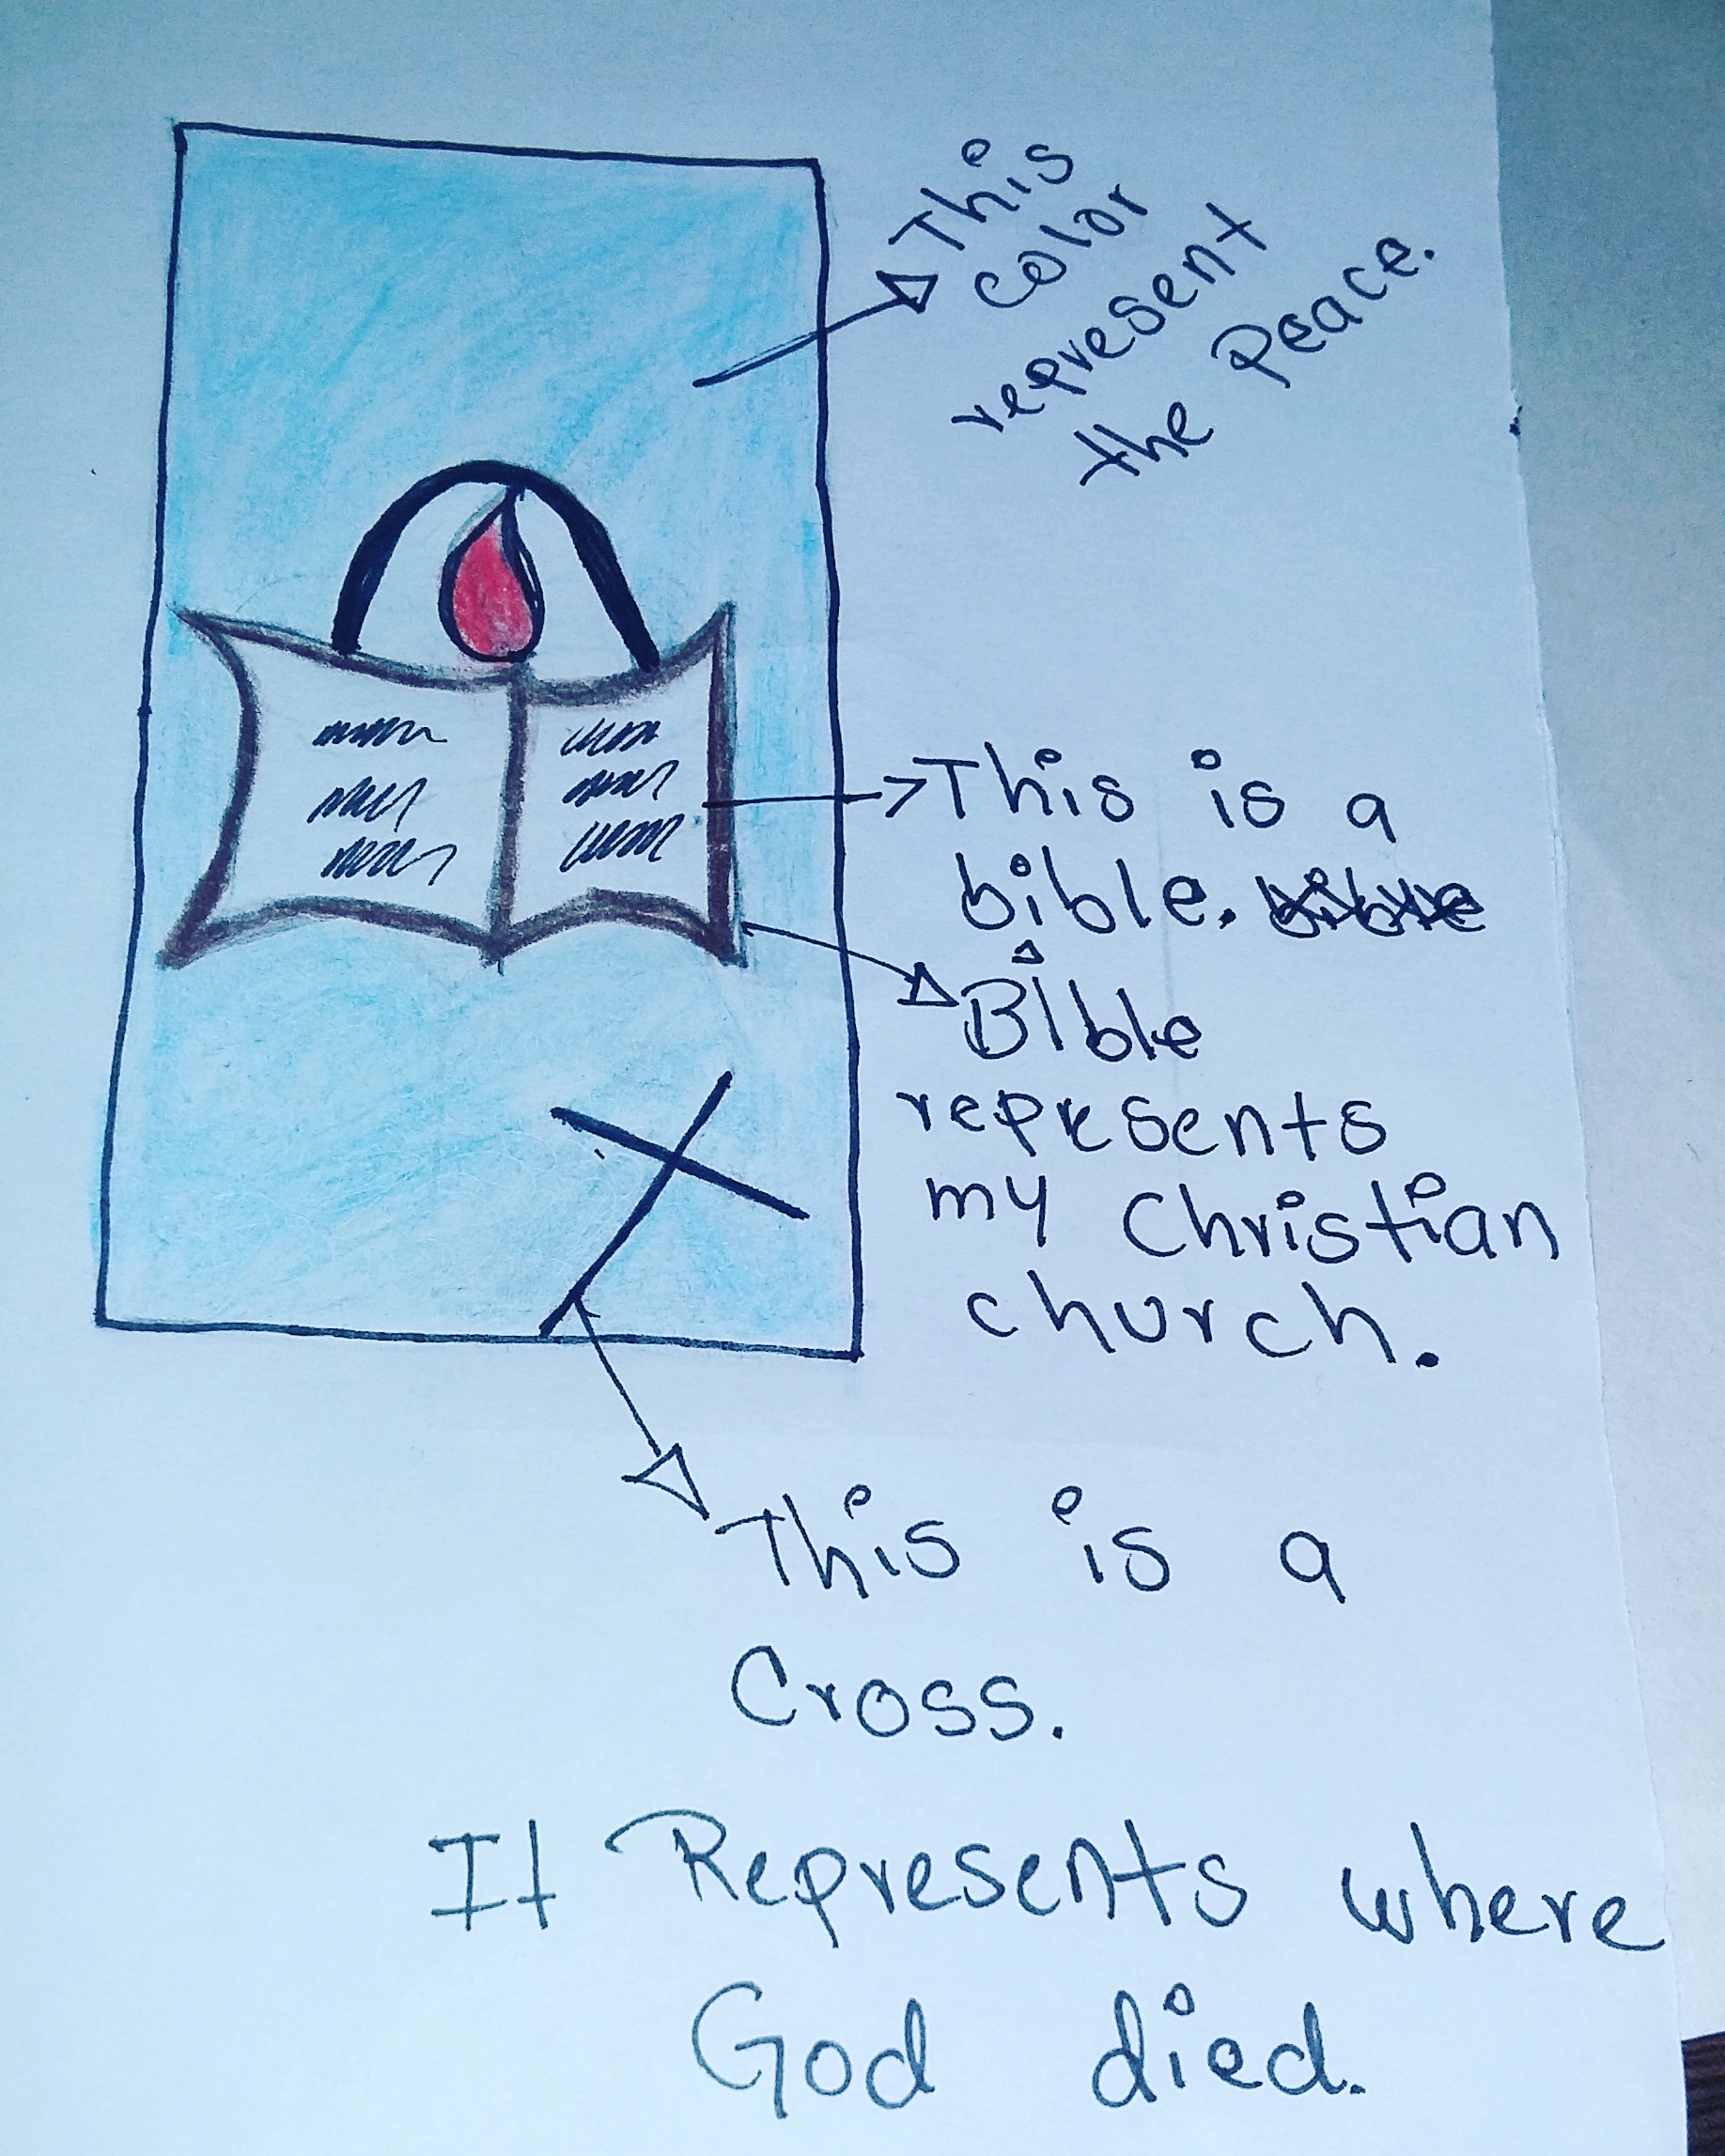 This
color
represent
the Peace.
This is a
bible. bible
Bible
represents
my Christian
church.
This is a
Cross.
It Represents where
God died.